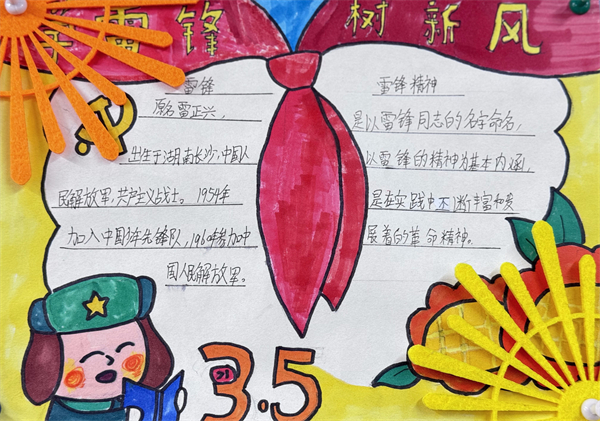 学雷锋 树新风
雷锋
原名雷正兴，
出生于湖南长沙，中国人
民解放军，共产主义战士。1954年
加入中国少年先锋队，1960年参加中
国人民解放军。
雷锋精神
是以雷锋同志的名字命名，
以雷锋的精神为基本内涵，
是在实践中不断丰富和发
展着的革命精神。
3.5